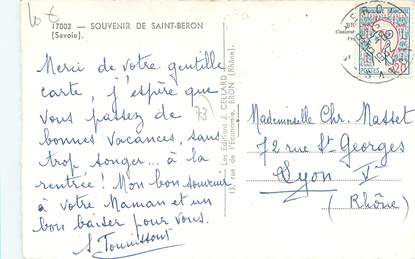 10 €
17002 — SOUVENIR DE SAINT-BERON
(Savoie).
Merci de votre gentille
carte, j'espère que
vous passez de
bonnes vacances, sans
trop songer... à la
rentrée! Mon bon souvenir
à votre Maman et un
bon baiser pour vous.
(73)
Les Editions J. CELLARD
13, rue de l'Economie, BRON (Rhône).
POSTES
0,20
Mademoiselle Chr. Masset
72 rue St. Georges
Lyon V°
(Rhône)